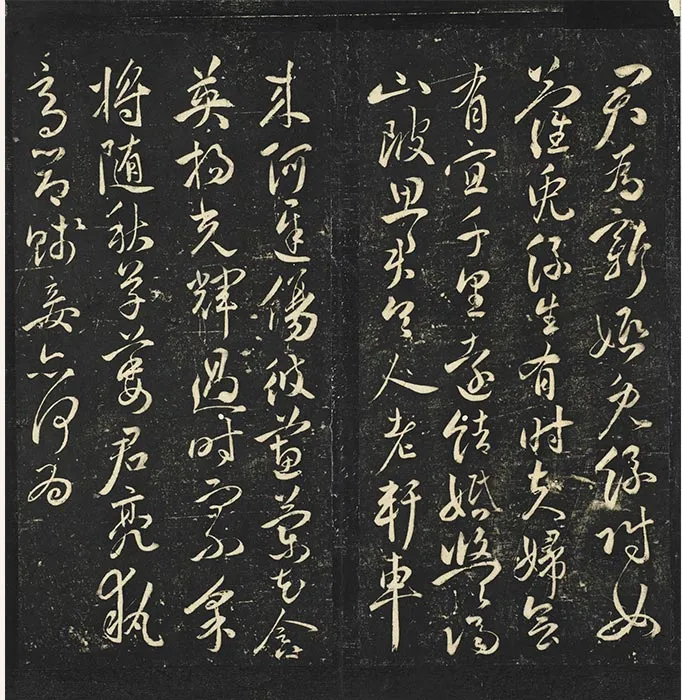 君為新婚兔絲附女
蘿兔絲生有時夫婦會
有宜千里遠結婚悠悠隔
山陂思君令人老軒車
来何遲傷彼蕙蘭花含
英揚光輝過時而不采
将随秋草萎君亮執
高節賤妾亦何為